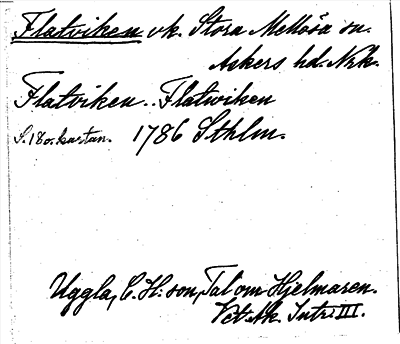 Flatviken vk. Stora Mellösa sn.
Askers hd. Nrk.
Flatviken.. Flatwiken
S. 180. kartan. 1786 Sthlm.
Uggla, C. H:son, Tal om Hjelmaren.
Vet. Ak. Intr. III.